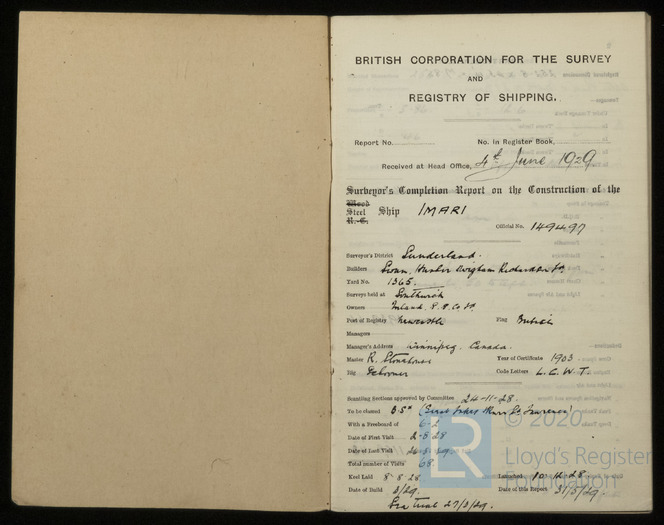 BRITISH CORPORATION FOR THE SURVEY
AND
REGISTRY OF SHIPPING.
Report No. No. in Register Book,
Received at Head Office, 4th June 1929
Surveyor's Completion Report on the Construction of the
Wood
Steel Ship IMARI
R. C.
Official No. 149497
Surveyor's District Sunderland.
Builders Swan, Hunter Wigham Richardson
Yard No. 1365.
Surveys held at Southwick
Owners Inland Co
Port of Registry Newcastle Flag British
Managers
Manager's Address Winnipeg. Canada.
Master R. Stonehouse Year of Certificate 1903
Rig Schooner Code Letters L. C. W. T.
Scantling Sections approved by Committee 24-11-28.
To be classed B.S* (Great Lakes St Lawrence)
With a Freeboard of 6-2
Date of First Visit 2-8-28
Date of Last Visit
Total number of Visits 68
Keel Laid 8-8-28 Launched 10-12-28
Date of Build 3/29. Date of this Report 31/5/29.
Sea trial 27/3/29.
LR © 2020
Lloyd's Register
Foundation